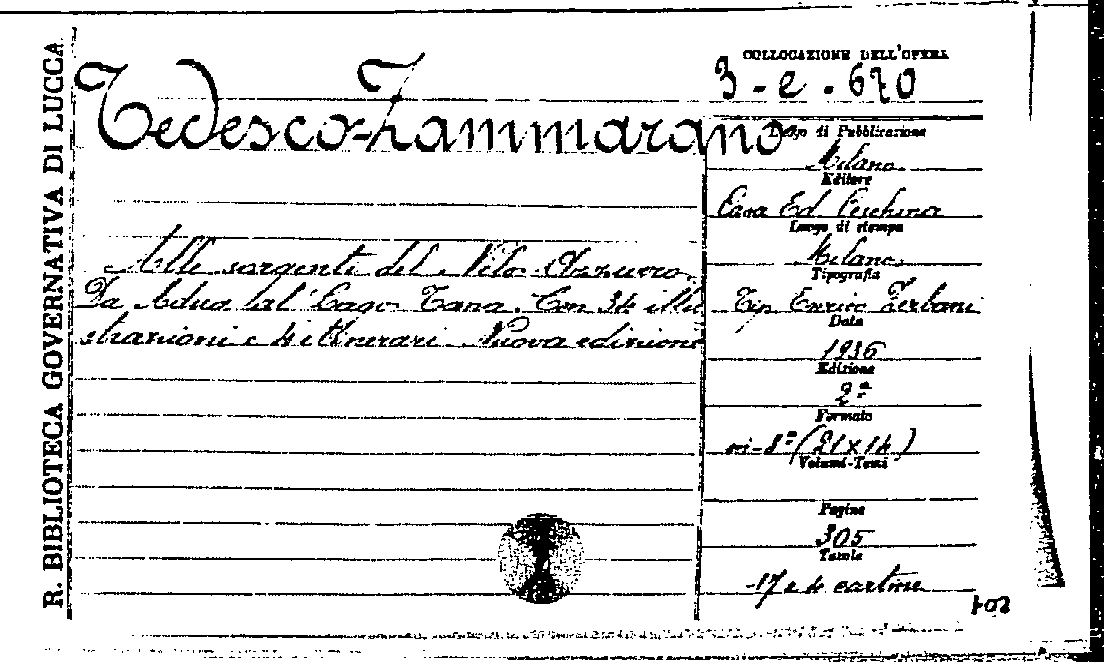 R. BIBLIOTECA GOVERNATIVA DI LUCCA
Tedesco-Zammarano
Alle sorgenti del Nilo Azzurro.
Da Adua al Lago Tana. Con 34 illu
strazioni e 4 itinerari. Nuova edizione
COLLOCAZIONE DELL'OPERA
3-e.670
Luogo di Pubblicazione
Milano
Editore
Casa Ed. Ceschina
Luogo di stampa
Milano
Tipografia
Tip. Enrico Zerboni
Data
1936
Edizione
2ª
Formato
in-8º (21x14)
Volumi-Tomi
Pagine
305
Tavole
17 e 4 cartine